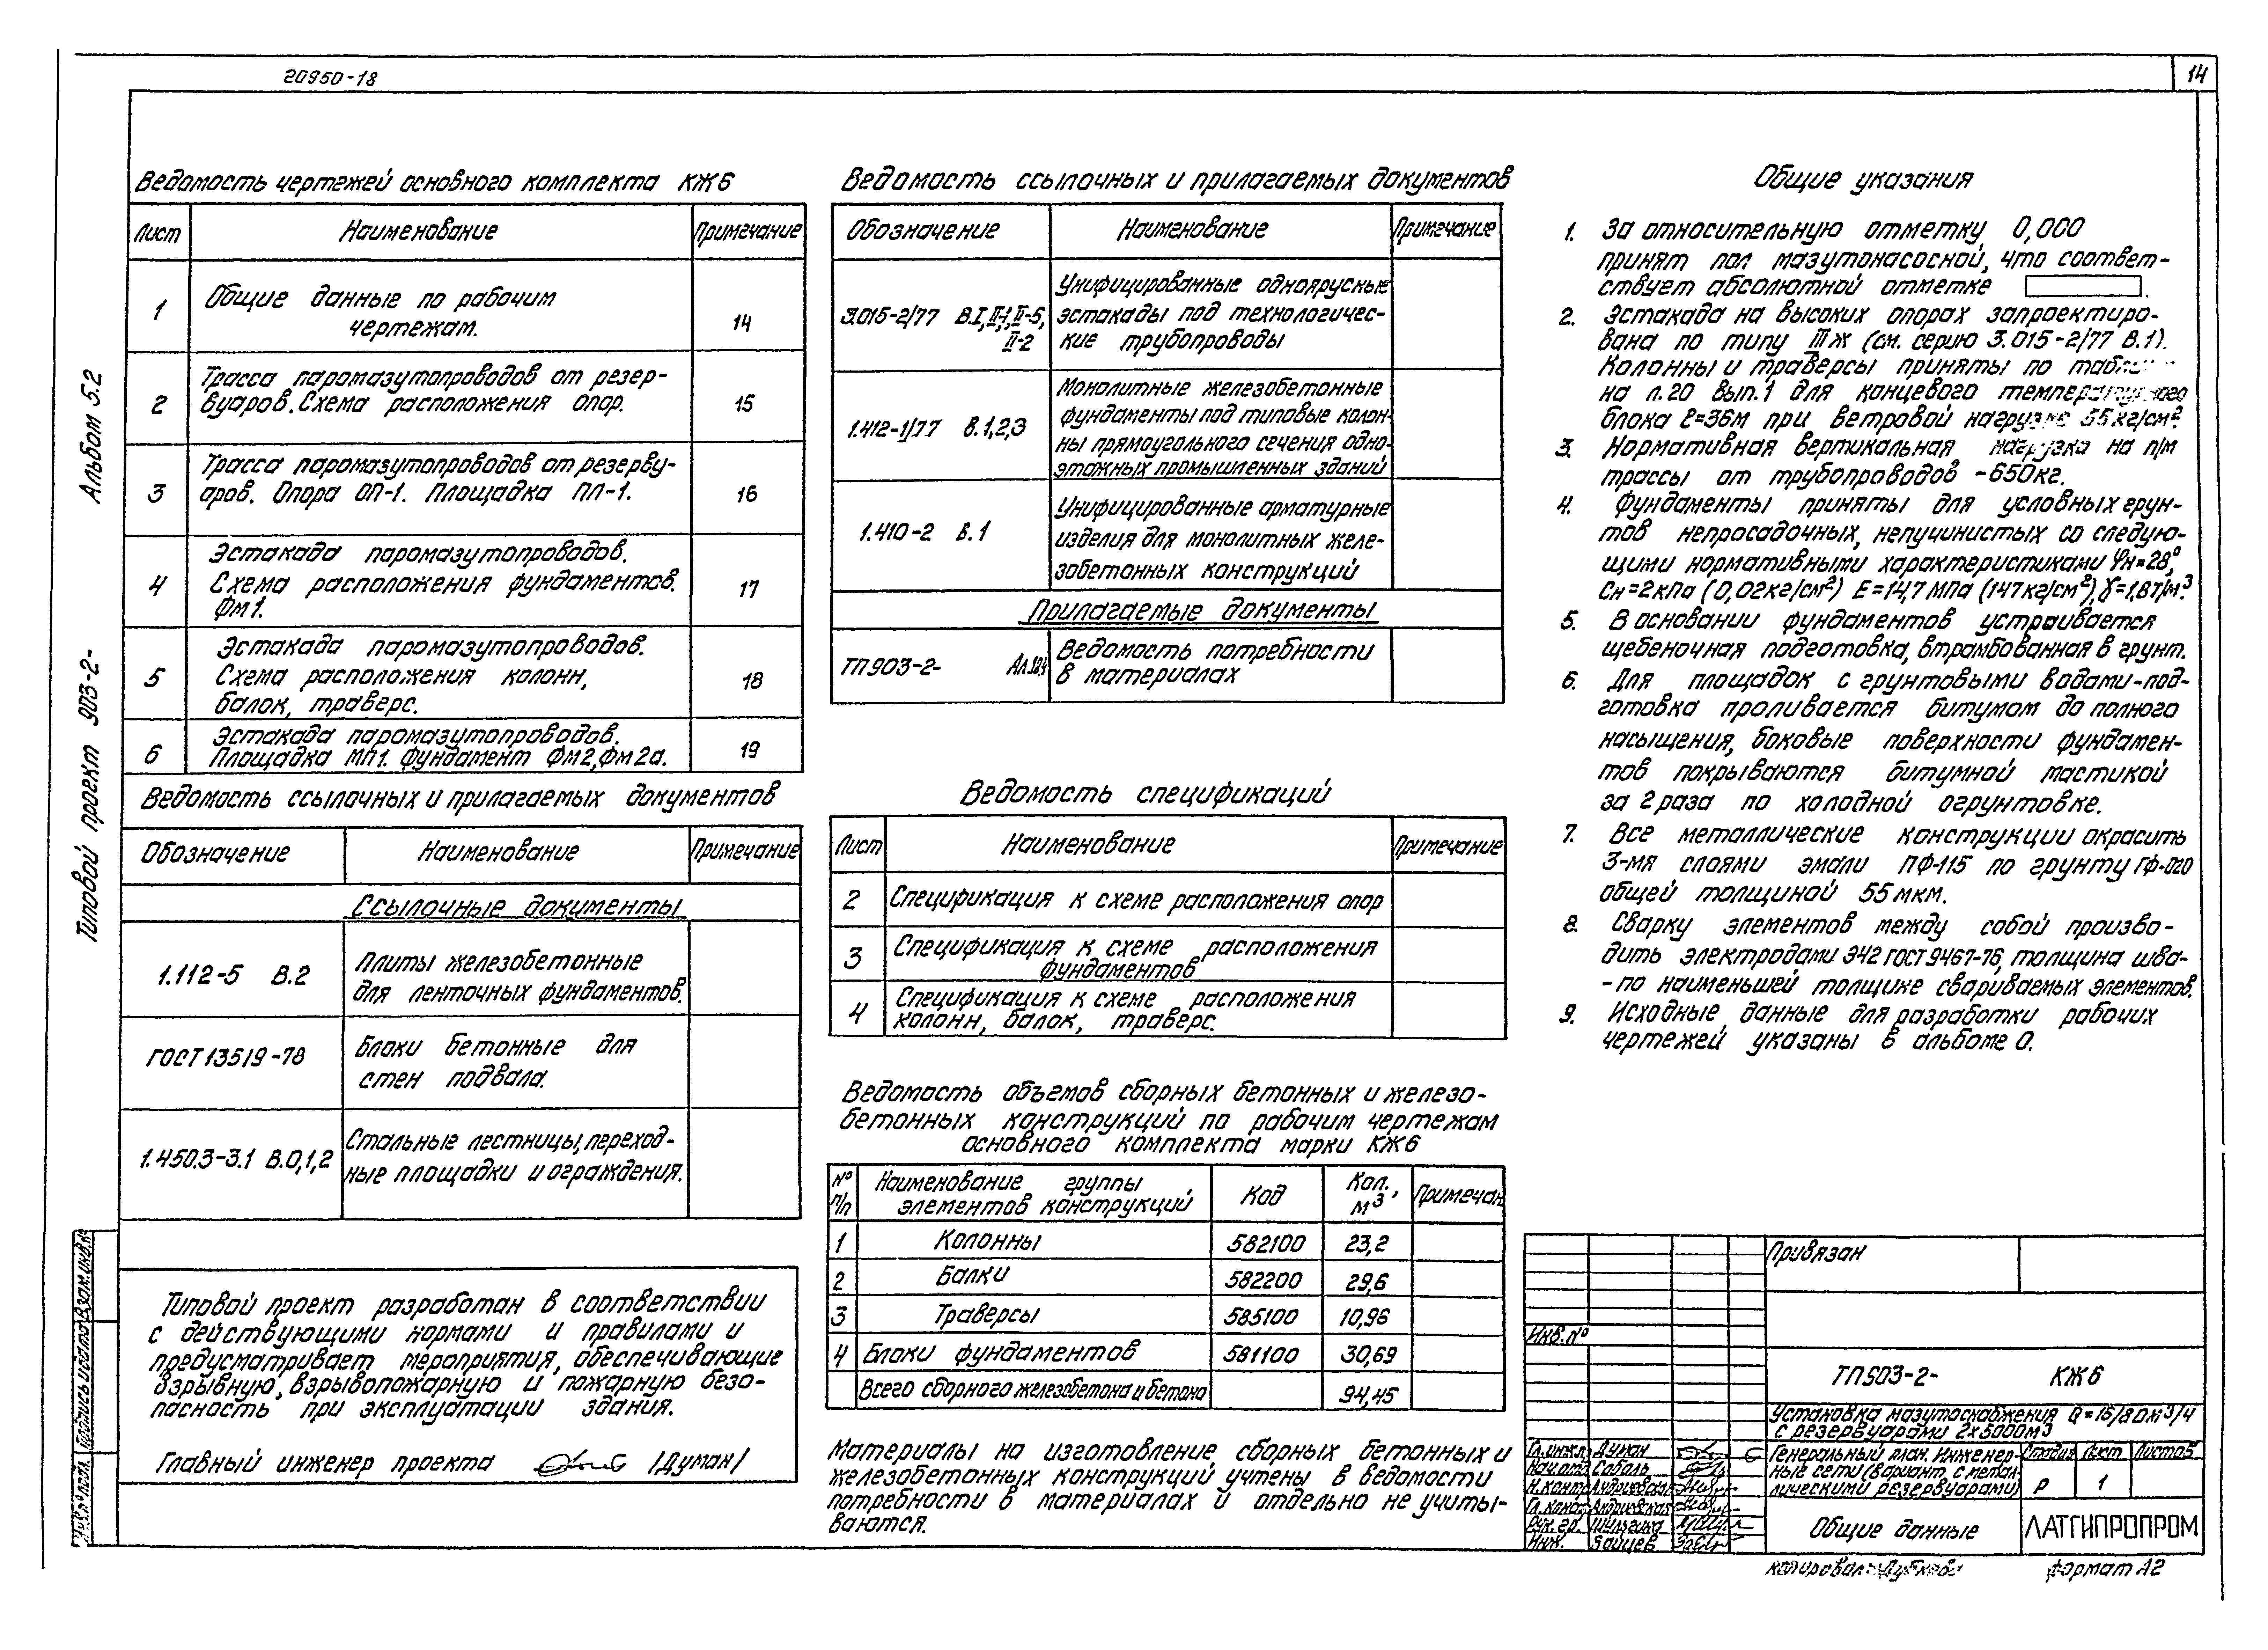 20950-18
14
Альбом 5.2
Типовой проект 903-2-
Ведомость чертежей основного комплекта КЖ6
Лист Наименование Примечание
1 Общие данные по рабочим
чертежам. 14
2 Трасса паромазутопроводов от резер-
вуаров. Схема расположения опор. 15
3 Трасса паромазутопроводов от резерву-
аров. Опора ОП-1. Площадка ПЛ-1. 16
4 Эстакада паромазутопроводов.
Схема расположения фундаментов.
Фм1. 17
5 Эстакада паромазутопроводов.
Схема расположения колонн,
балок, траверс. 18
6 Эстакада паромазутопроводов.
Площадка МП1. Фундамент Фм2, Фм2а. 19
Ведомость ссылочных и прилагаемых документов
Обозначение Наименование Примечание
Ссылочные документы
1.112-5 В.2 Плиты железобетонные
для ленточных фундаментов.
ГОСТ 13519-78 Блоки бетонные для
стен подвала.
1.450.3-3.1 В.0,1,2 Стальные лестницы, переход-
ные площадки и ограждения.
Типовой проект разработан в соответствии
с действующими нормами и правилами и
предусматривает мероприятия, обеспечивающие
взрывную, взрывопожарную и пожарную безо-
пасность при эксплуатации здания.
Главный инженер проекта /Думан/
Ведомость ссылочных и прилагаемых документов
Обозначение Наименование Примечание
3.015-2/77 В.I, II-1, II-5,
II-2
Унифицированные одноярусные
эстакады под технологичес-
кие трубопроводы
1.412-1/77 В.1,2,3
Монолитные железобетонные
фундаменты под типовые колон-
ны прямоугольного сечения одно-
этажных промышленных зданий
1.410-2 В.1
Унифицированные арматурные
изделия для монолитных желе-
зобетонных конструкций
Прилагаемые документы
ТП903-2- Ведомость потребности
в материалах
Ведомость спецификаций
Лист Наименование Примечание
2 Спецификация к схеме расположения опор
3 Спецификация к схеме расположения
фундаментов
4 Спецификация к схеме расположения
колонн, балок, траверс.
Ведомость объемов сборных бетонных и железо-
бетонных конструкций по рабочим чертежам
основного комплекта марки КЖ6
№ п/п Наименование группы элементов конструкций Код Кол., м3 Примечан.
1 Колонны 582100 23,2
2 Балки 582200 29,6
3 Траверсы 585100 10,96
4 Блоки фундаментов 581100 30,69
Всего сборного железобетона и бетона 94,45
Материалы на изготовление сборных бетонных и
железобетонных конструкций учтены в ведомости
потребности в материалах и отдельно не учиты-
ваются.
Общие указания
1. За относительную отметку 0,000
принят пол мазутонасосной, что соответ-
ствует абсолютной отметке .
2. Эстакада на высоких опорах запроектиро-
вана по типу IIIж (см. серию 3.015-2/77 В.1).
Колонны и траверсы приняты по
на л.20 вып.1 для концевого температурного
блока ℓ=36м при ветровой нагрузке 55кг/см².
3. Нормативная вертикальная нагрузка на п/м
трассы от трубопроводов -650кг.
4. Фундаменты приняты для условных грун-
тов непросадочных, непучинистых со следую-
щими нормативными характеристиками φн=28°,
Сн=2кПа (0,02кг/см²) Е=14,7МПа (147кг/см²), γ=1,8т/м³.
5. В основании фундаментов устраивается
щебеночная подготовка, втрамбованная в грунт.
6. Для площадок с грунтовыми водами-под-
готовка проливается битумом до полного
насыщения, боковые поверхности фундамен-
тов покрываются битумной мастикой
за 2 раза по холодной огрунтовке.
7. Все металлические конструкции окрасить
3-мя слоями эмали ПФ-115 по грунту ГФ-020
общей толщиной 55мкм.
8. Сварку элементов между собой произво-
дить электродами Э42 ГОСТ 9467-76, толщина шва-
-по наименьшей толщине свариваемых элементов.
9. Исходные данные для разработки рабочих
чертежей указаны в альбоме 0.
Привязан
Инв.№
ТП903-2- КЖ6
Установка мазутоснабжения Q=15/80м3/ч
с резервуарами 2х5000м3
Гл.инж.п. Думан
Нач.отд. Соболь
Н.контр. Андриевская
Гл.конс. Андриевская
Рук.гр. Шульгина
Инж. Зайцев
Генеральный план. Инженер-
ные сети (вариант с метал-
лическими резервуарами)
Стадия Лист Листов
Р 1
Общие данные
ЛАТГИПРОПРОМ
Копировал:
формат А2
Взам.инв.№
Подпись и дата
Инв.№ подл.